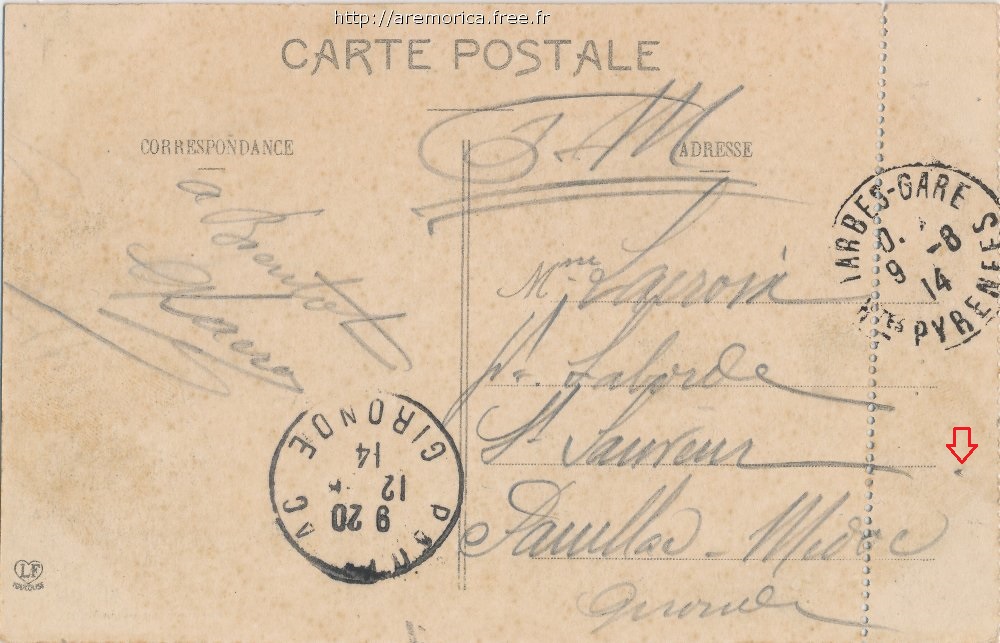 http://aremorica.free.fr
CARTE POSTALE
CORRESPONDANCE
ADRESSE
F. M
a Bientot
Mme Lacroix
St Sauveur
Pauillac - Médoc
Gironde
TARBES-GARE
-8
9 14
Htes PYRENEES
GIRONDE
14
12
9 20
LF
TOULOUSE